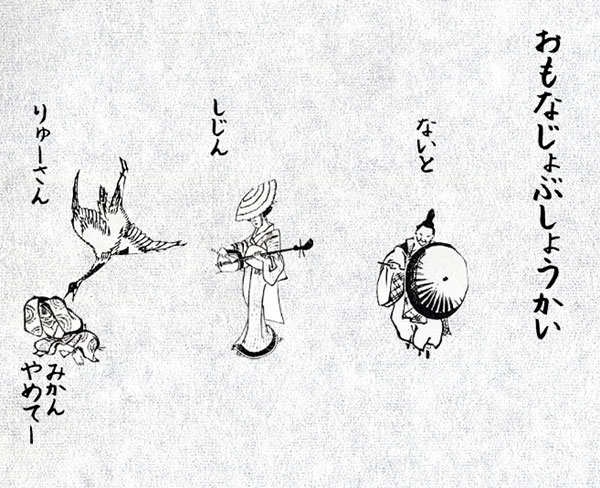 おもなじょぶしょうかい
ないと
しじん
りゅーさん
みかん
やめてー